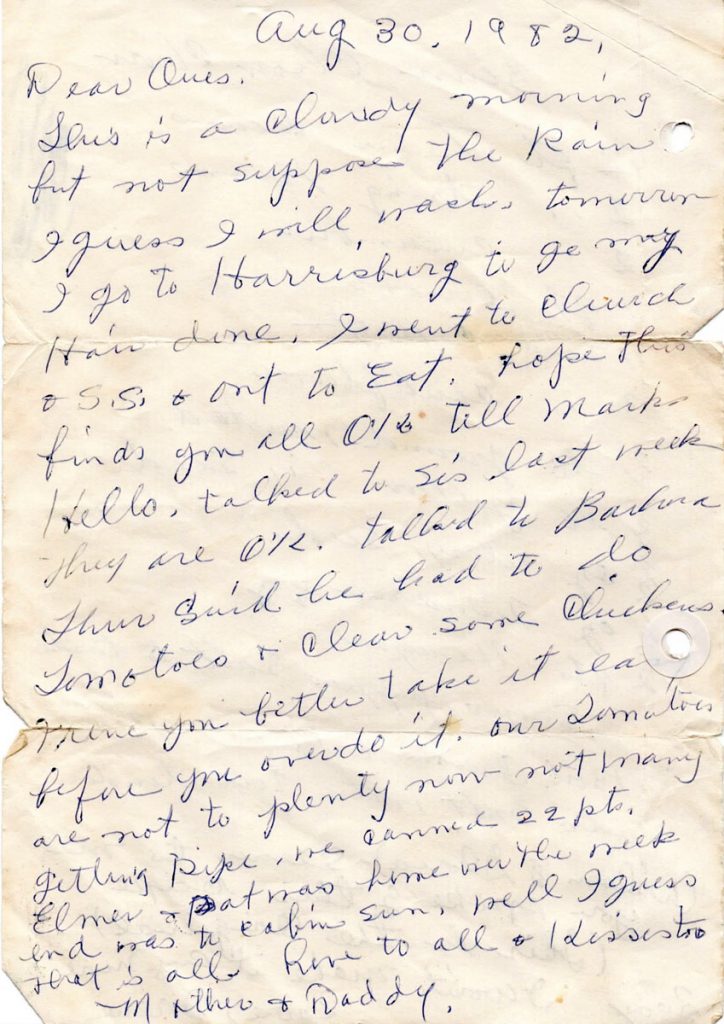 Aug 30, 1982,
Dear Ones.
This is a Cloudy morning
but not suppose the Rain
I guess I will wash, tomorrow
I go to Harrisburg to ge my
Hair done, I went to Church
& S.S. & out to Eat. hope This
finds you all O.K. tell Mark
Hello, talked to Sis last week
they are O.K. talked to Barbara
Thur Said he had to do
Tomatoes & Clean some Chickens.
Irene you better take it eas
before you overdo it. our Tomatoes
are not to plenty now not many
getting Ripe, we canned 22 pts.
Elmer & Pat was home over the week
end was to cabin Sun, well I guess
that is all. Love to all & Kisses too
Mother & Daddy.